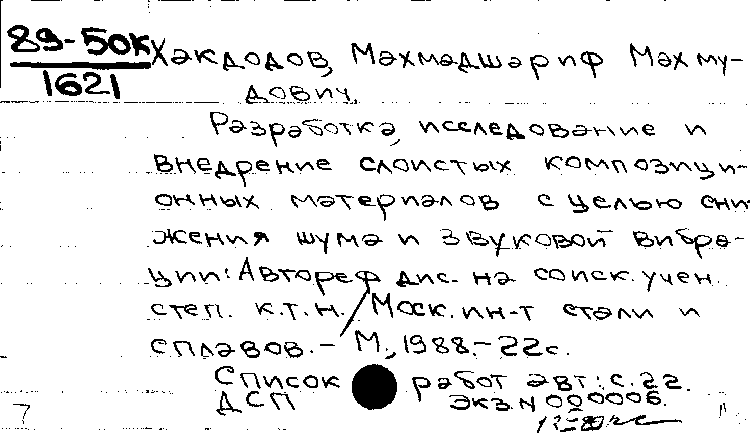 89-50К Хакдодов, Махмадшариф Махму-
1621 дович.
Разработка, исследование и
внедрение слоистых композици-
онных материалов с целью сни-
жения шума и звуковой вибра-
ции: Автореф дис. на соиск. учен.
степ. к.т.н. / Моск. ин-т стали и
сплавов. - М., 1988. - 22с.
Список работ авт.: с. 22.
ДСП экз. N 000006.
7